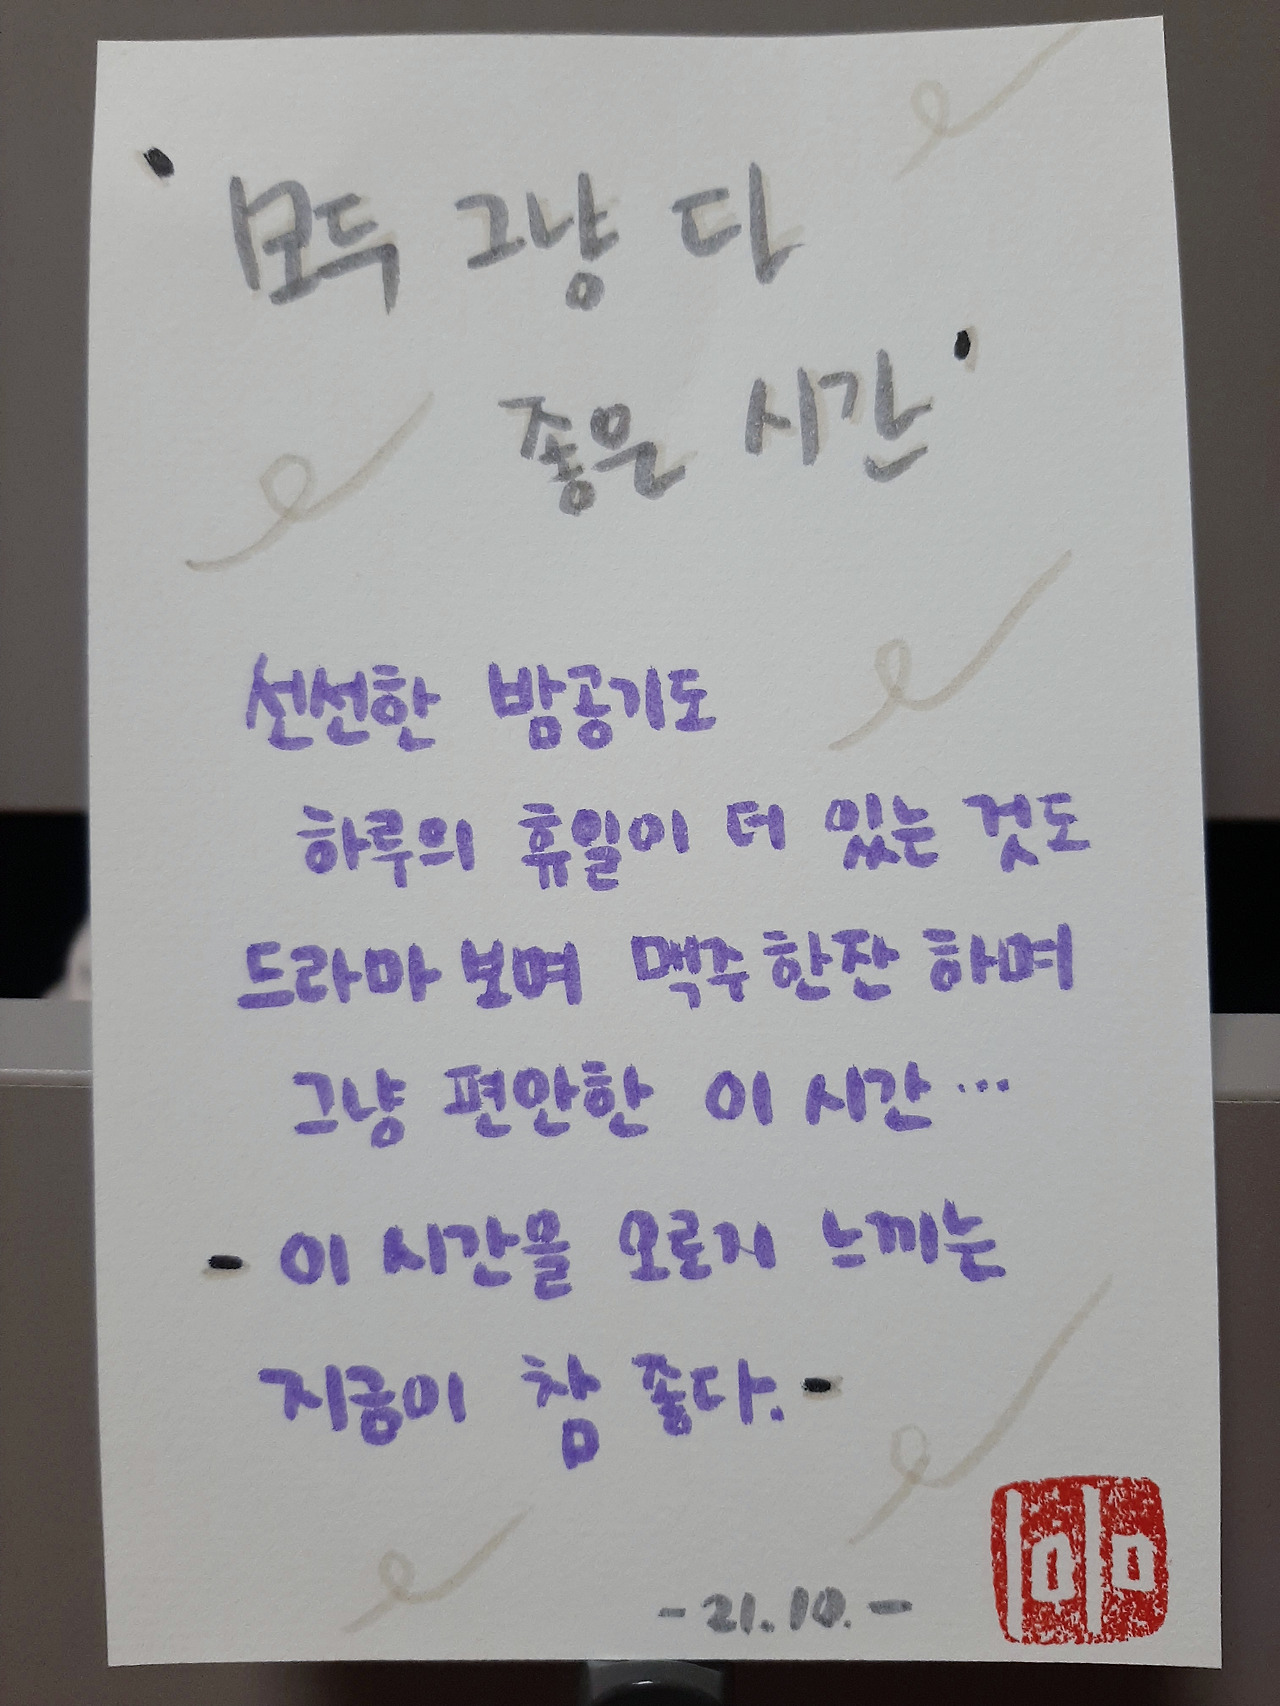 '모두 그냥 다
좋은 시간'
선선한 밤공기도
하루의 휴일이 더 있는 것도
드라마 보며 맥주 한잔 하며
그냥 편안한 이 시간...
- 이 시간을 오로지 느끼는
지금이 참 좋다. -
- 21. 10. -